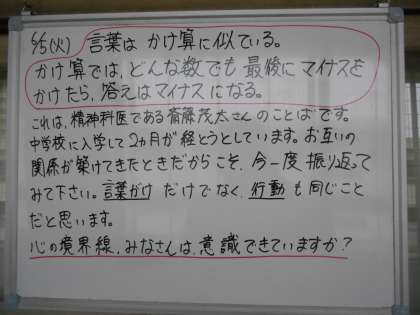 6/5(火) 言葉は かけ算に似ている。
かけ算では、どんな数でも 最後に マイナスを
かけたら、答えはマイナスになる。
これは、精神科医である斎藤茂太さんの ことばです。
中学校に入学して2カ月が 経とうとしています。お互いの
関係が築けてきたときだからこそ、今一度 振り返って
みて下さい。言葉がけ だけでなく、行動 も同じこと
だと思います。
心の境界線、みなさんは、意識できていますか？